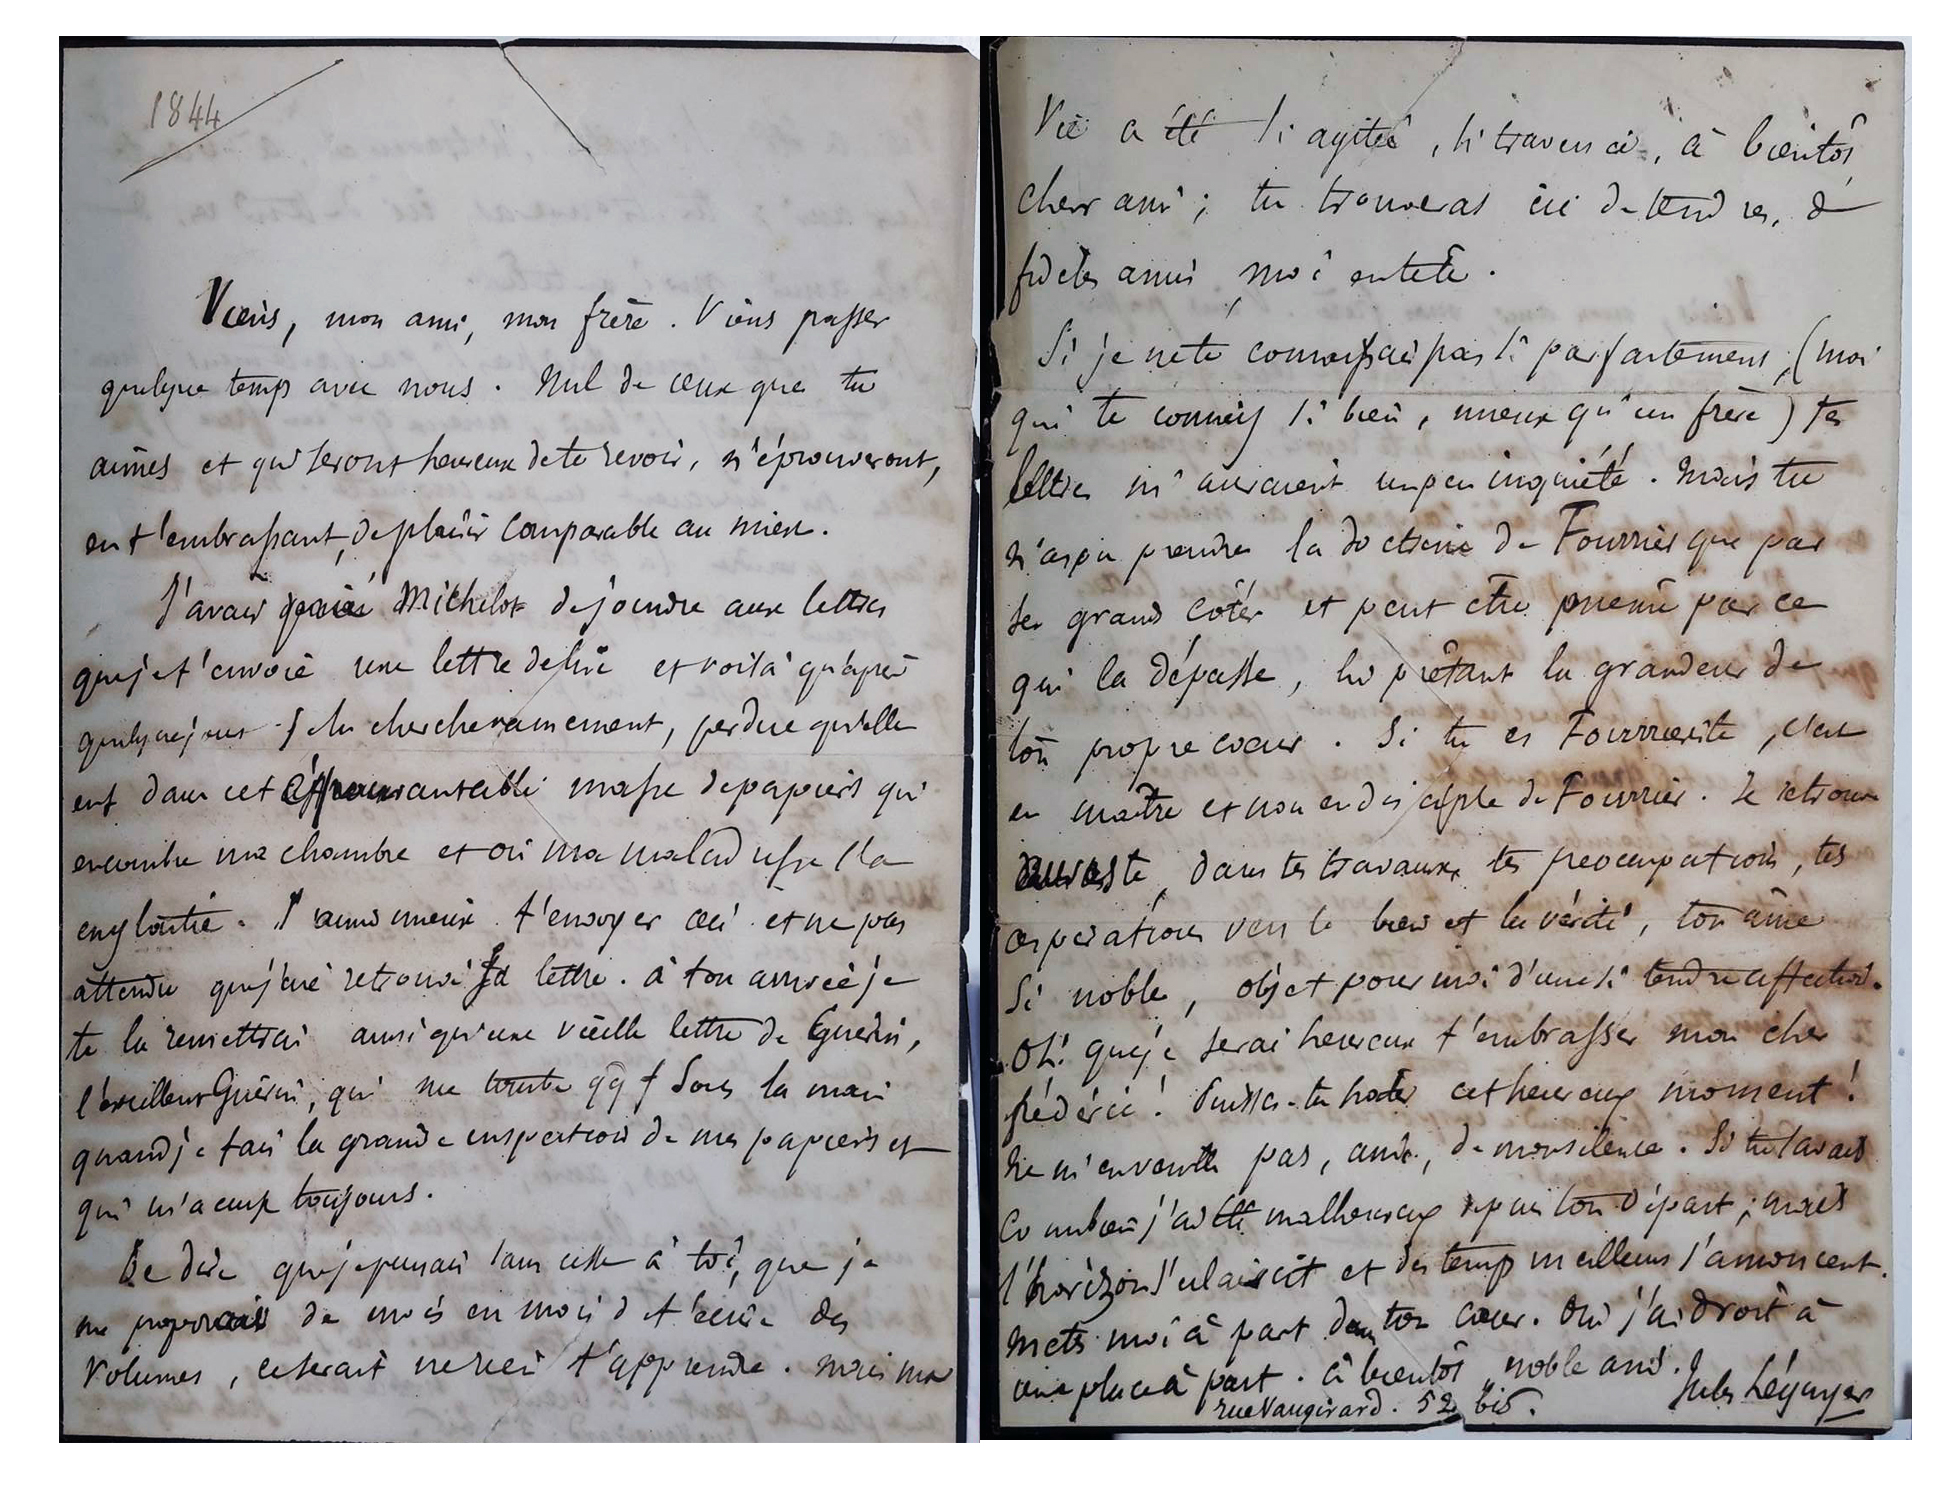 1844
Viens, mon ami, mon frère. Viens passer
quelque temps avec nous. Nul de ceux que tu
aimes et qui seront heureux de te revoir, n'éprouveront,
en t'embrassant, de plaisir comparable au mien.
J'avais prié Michelot de joindre aux lettres
que je t'envoie une lettre de lui et voilà qu'après
quelques jours je la cherche vainement, perdue qu'elle
est dans cet épouvantable masse de papiers qui
encombre ma chambre et où ma maladresse l'a
engloutie. J'aime mieux t'envoyer ceci et ne pas
attendre que j'aie retrouvé sa lettre. à ton arrivée je
te la remettrai ainsi qu'une vieille lettre de Guérin,
l'excellent Guérin, qui me tombe qqf sous la main
quand je fais la grande inspection de mes papiers et
qui m'accuse toujours.
De dire que je pensais sans cesse à toi, que je
me proposais de mois en mois de t'écrire des
volumes, ce serait ne rien t'apprendre. Mais ma
vie a été si agitée, si traversée, à bientôt,
cher ami; tu trouveras ici de tendres, de
fidèles amis, moi en tête.
Si je ne te connaissais pas si parfaitement, (moi
qui te connais si bien, mieux qu'un frère) tes
lettres m'auraient un peu inquiété. Mais tu
n'as pu prendre la doctrine de Fourrier que par
ses grands côtés et peut être même par ce
qui la dépasse, lui prêtant la grandeur de
ton propre cœur. Si tu es Fourrieriste, c'est
en maître et non en disciple de Fourrier. Je retrouve
du reste, dans tes travaux, tes préoccupations, tes
aspirations vers le bien et la vérité, ton âme
si noble, objet pour moi d'une si tendre affection.
Oh! que je serai heureux t'embrasser mon cher
frédéric! Puisses-tu hater cet heureux moment!
Ne m'en veuille pas, ami, de mon silence. Si tu savais
combien j'ai été malheureux depuis ton départ; mais
l'horizon s'éclaircit et des temps meilleurs s'annoncent.
Mets moi à part dans ton cœur. Oui j'ai droit à
une place à part. à bientôt, noble ami.
Jules Léguyer
rue Vaugirard. 52 bis.